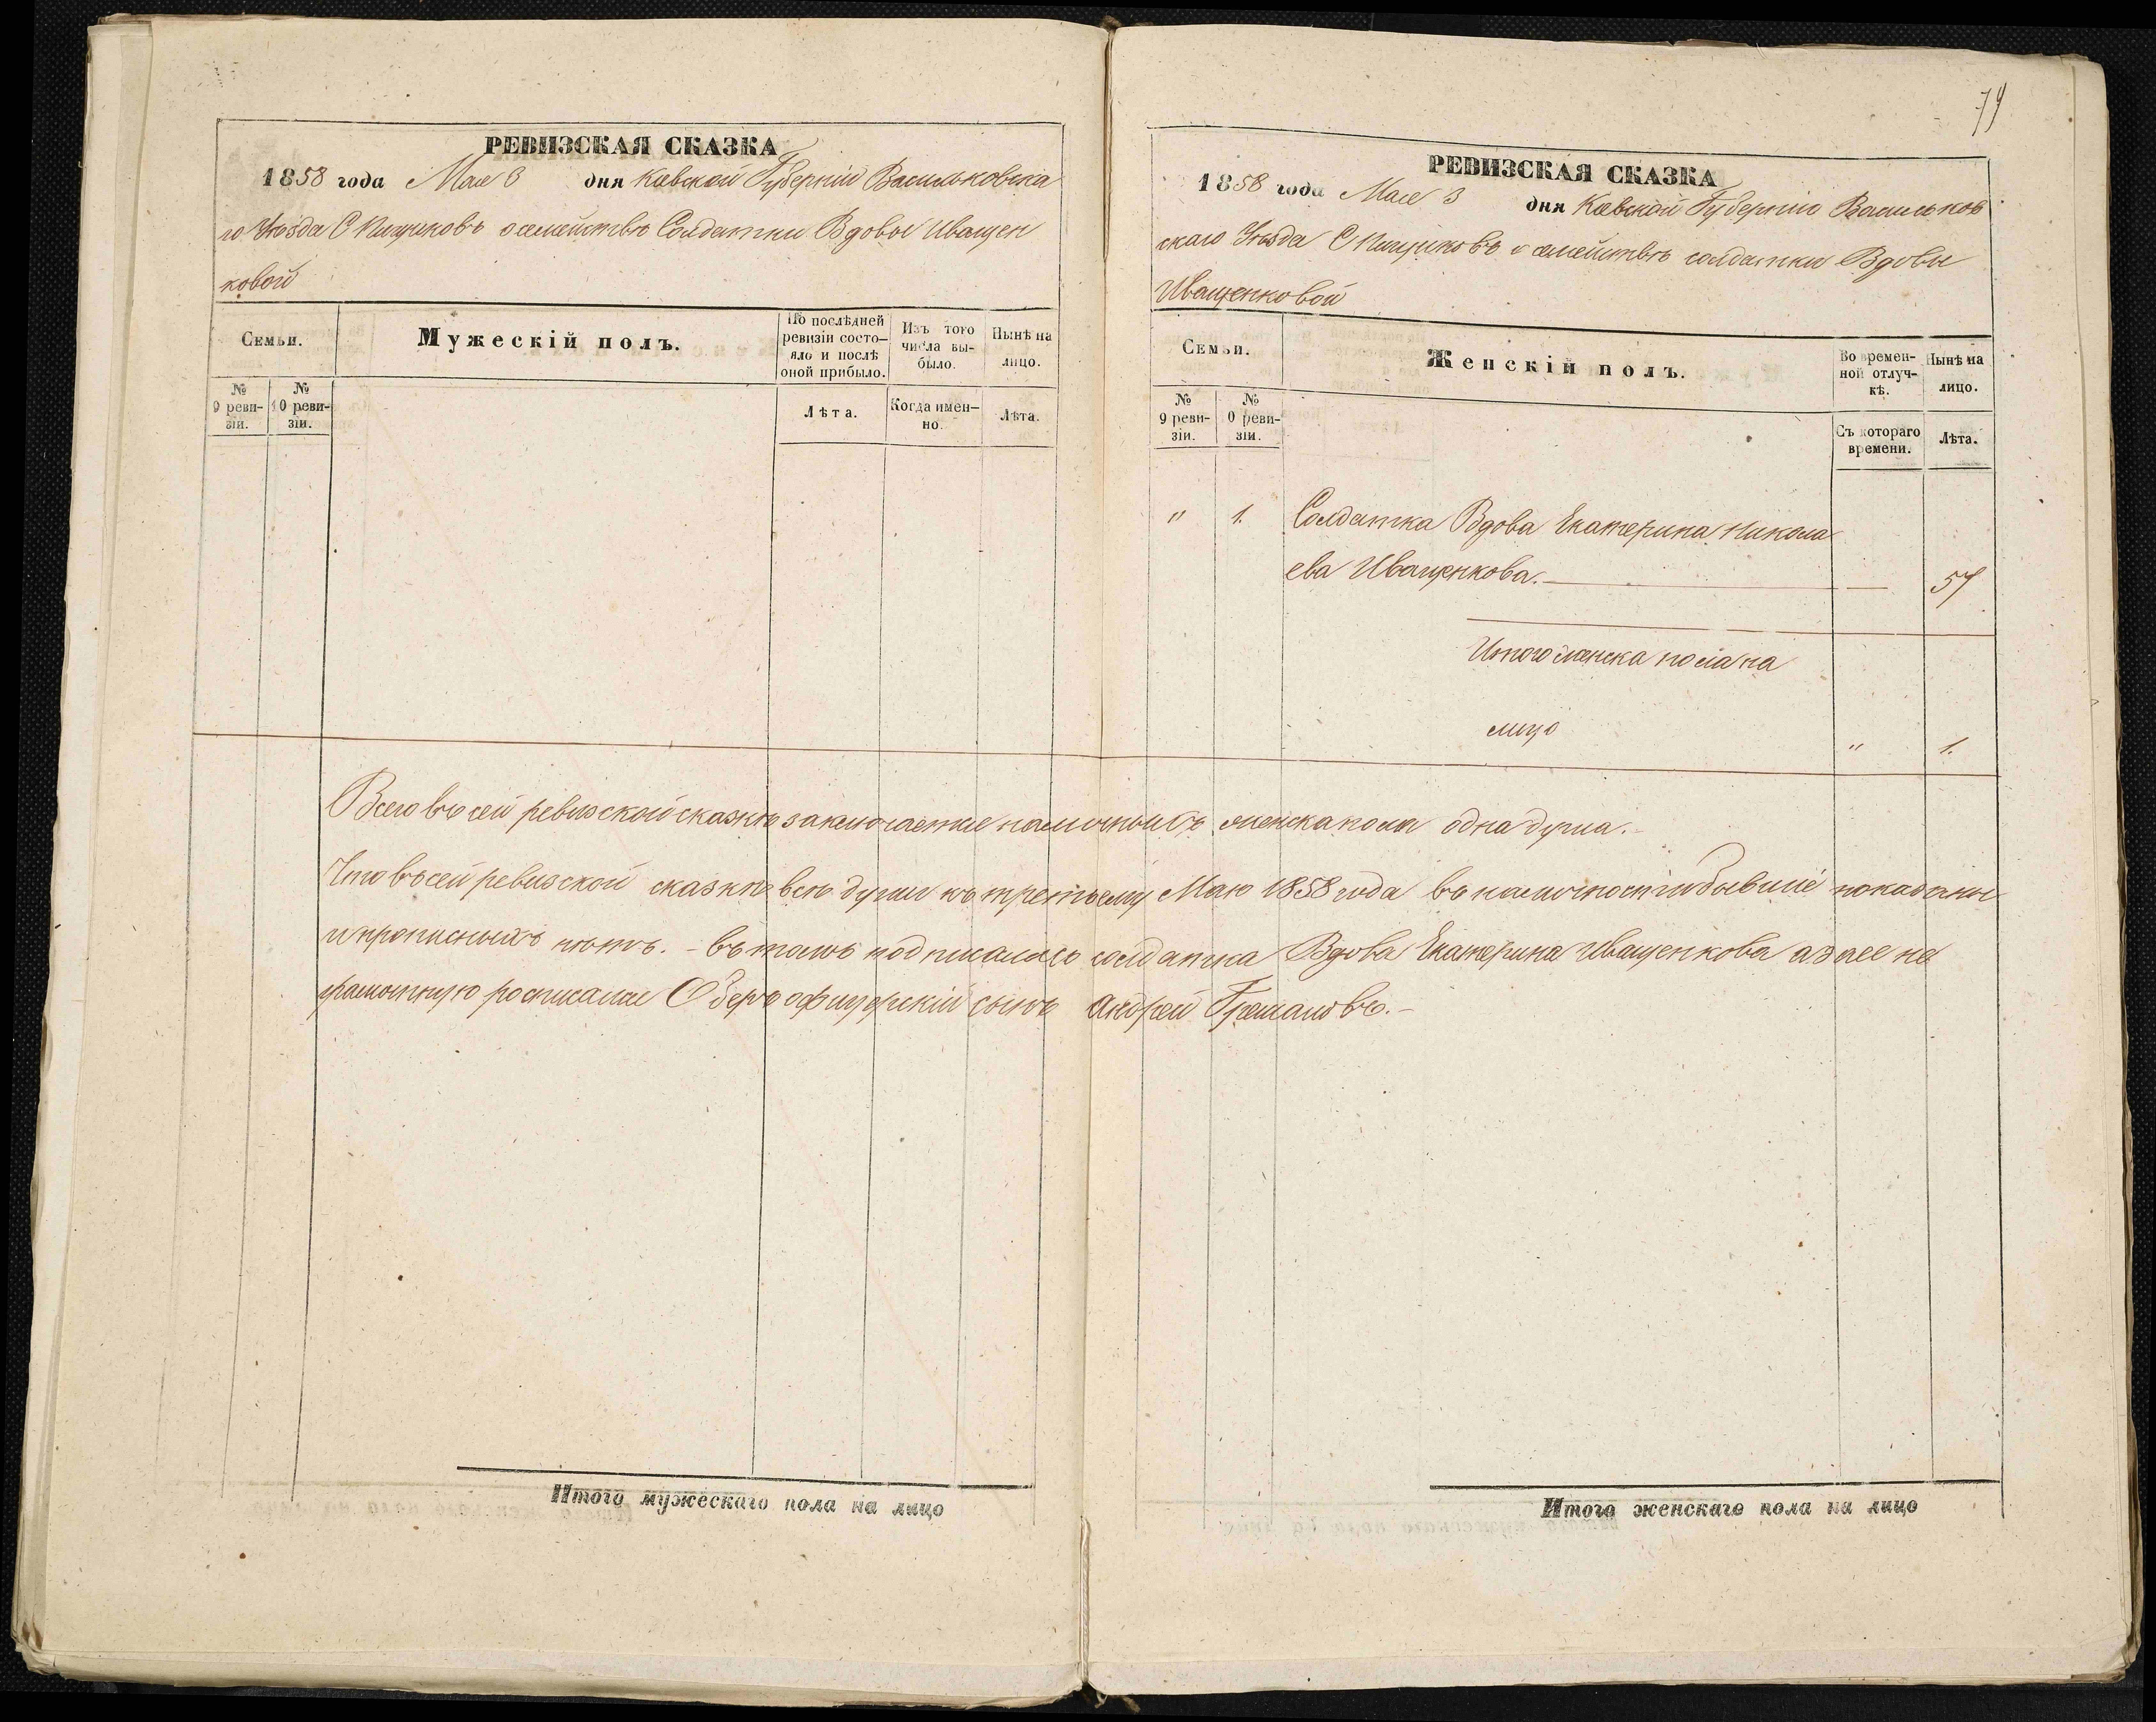 РЕВИЗСКАЯ СКАЗКА
1858 года Мая 3 дня Кіевской Губерніи Васильковска
го Уѣзда С Пищиковъ о семействѣ Солдатки Вдовы Иващен
ковой
Семьи.
Мужескій полъ.
По послѣдней ревизіи состояло и послѣ оной прибыло.
Изъ того числа выбыло.
Нынѣ на лицо.
№ 9 ревизіи.
№ 10 ревизіи.
Лѣта.
Когда именно.
Лѣта.
Итого мужескаго пола на лицо
79
РЕВИЗСКАЯ СКАЗКА
1858 года Мая 3 дня Кіевской Губерніи Васильков
скаго Уѣзда С Пищиковъ о семействѣ солдатки Вдовы
Иващенковой
Семьи.
Женскій полъ.
Во временной отлучкѣ.
Нынѣ на лицо.
№ 9 ревизіи.
№ 0 ревизіи.
Съ котораго времени.
Лѣта.
" 1. Солдатка Вдова Екатерина Никола
ева Иващенкова. 57
Итого женска пола на
лицо " 1.
Всего въ сей ревизской сказкѣ заключается наличныхъ женска пола одна душа.
Что въ сей ревизской сказкѣ всѣ души къ третьему Маю 1858 года въ наличности бывшіе показаны
и прописныхъ нѣтъ. - въ томъ подписалась солдатка Вдова Екатерина Иващенкова а за ее не
грамотную росписался Оберъ офицерскій сынъ Андрей
Итого женскаго пола на лицо